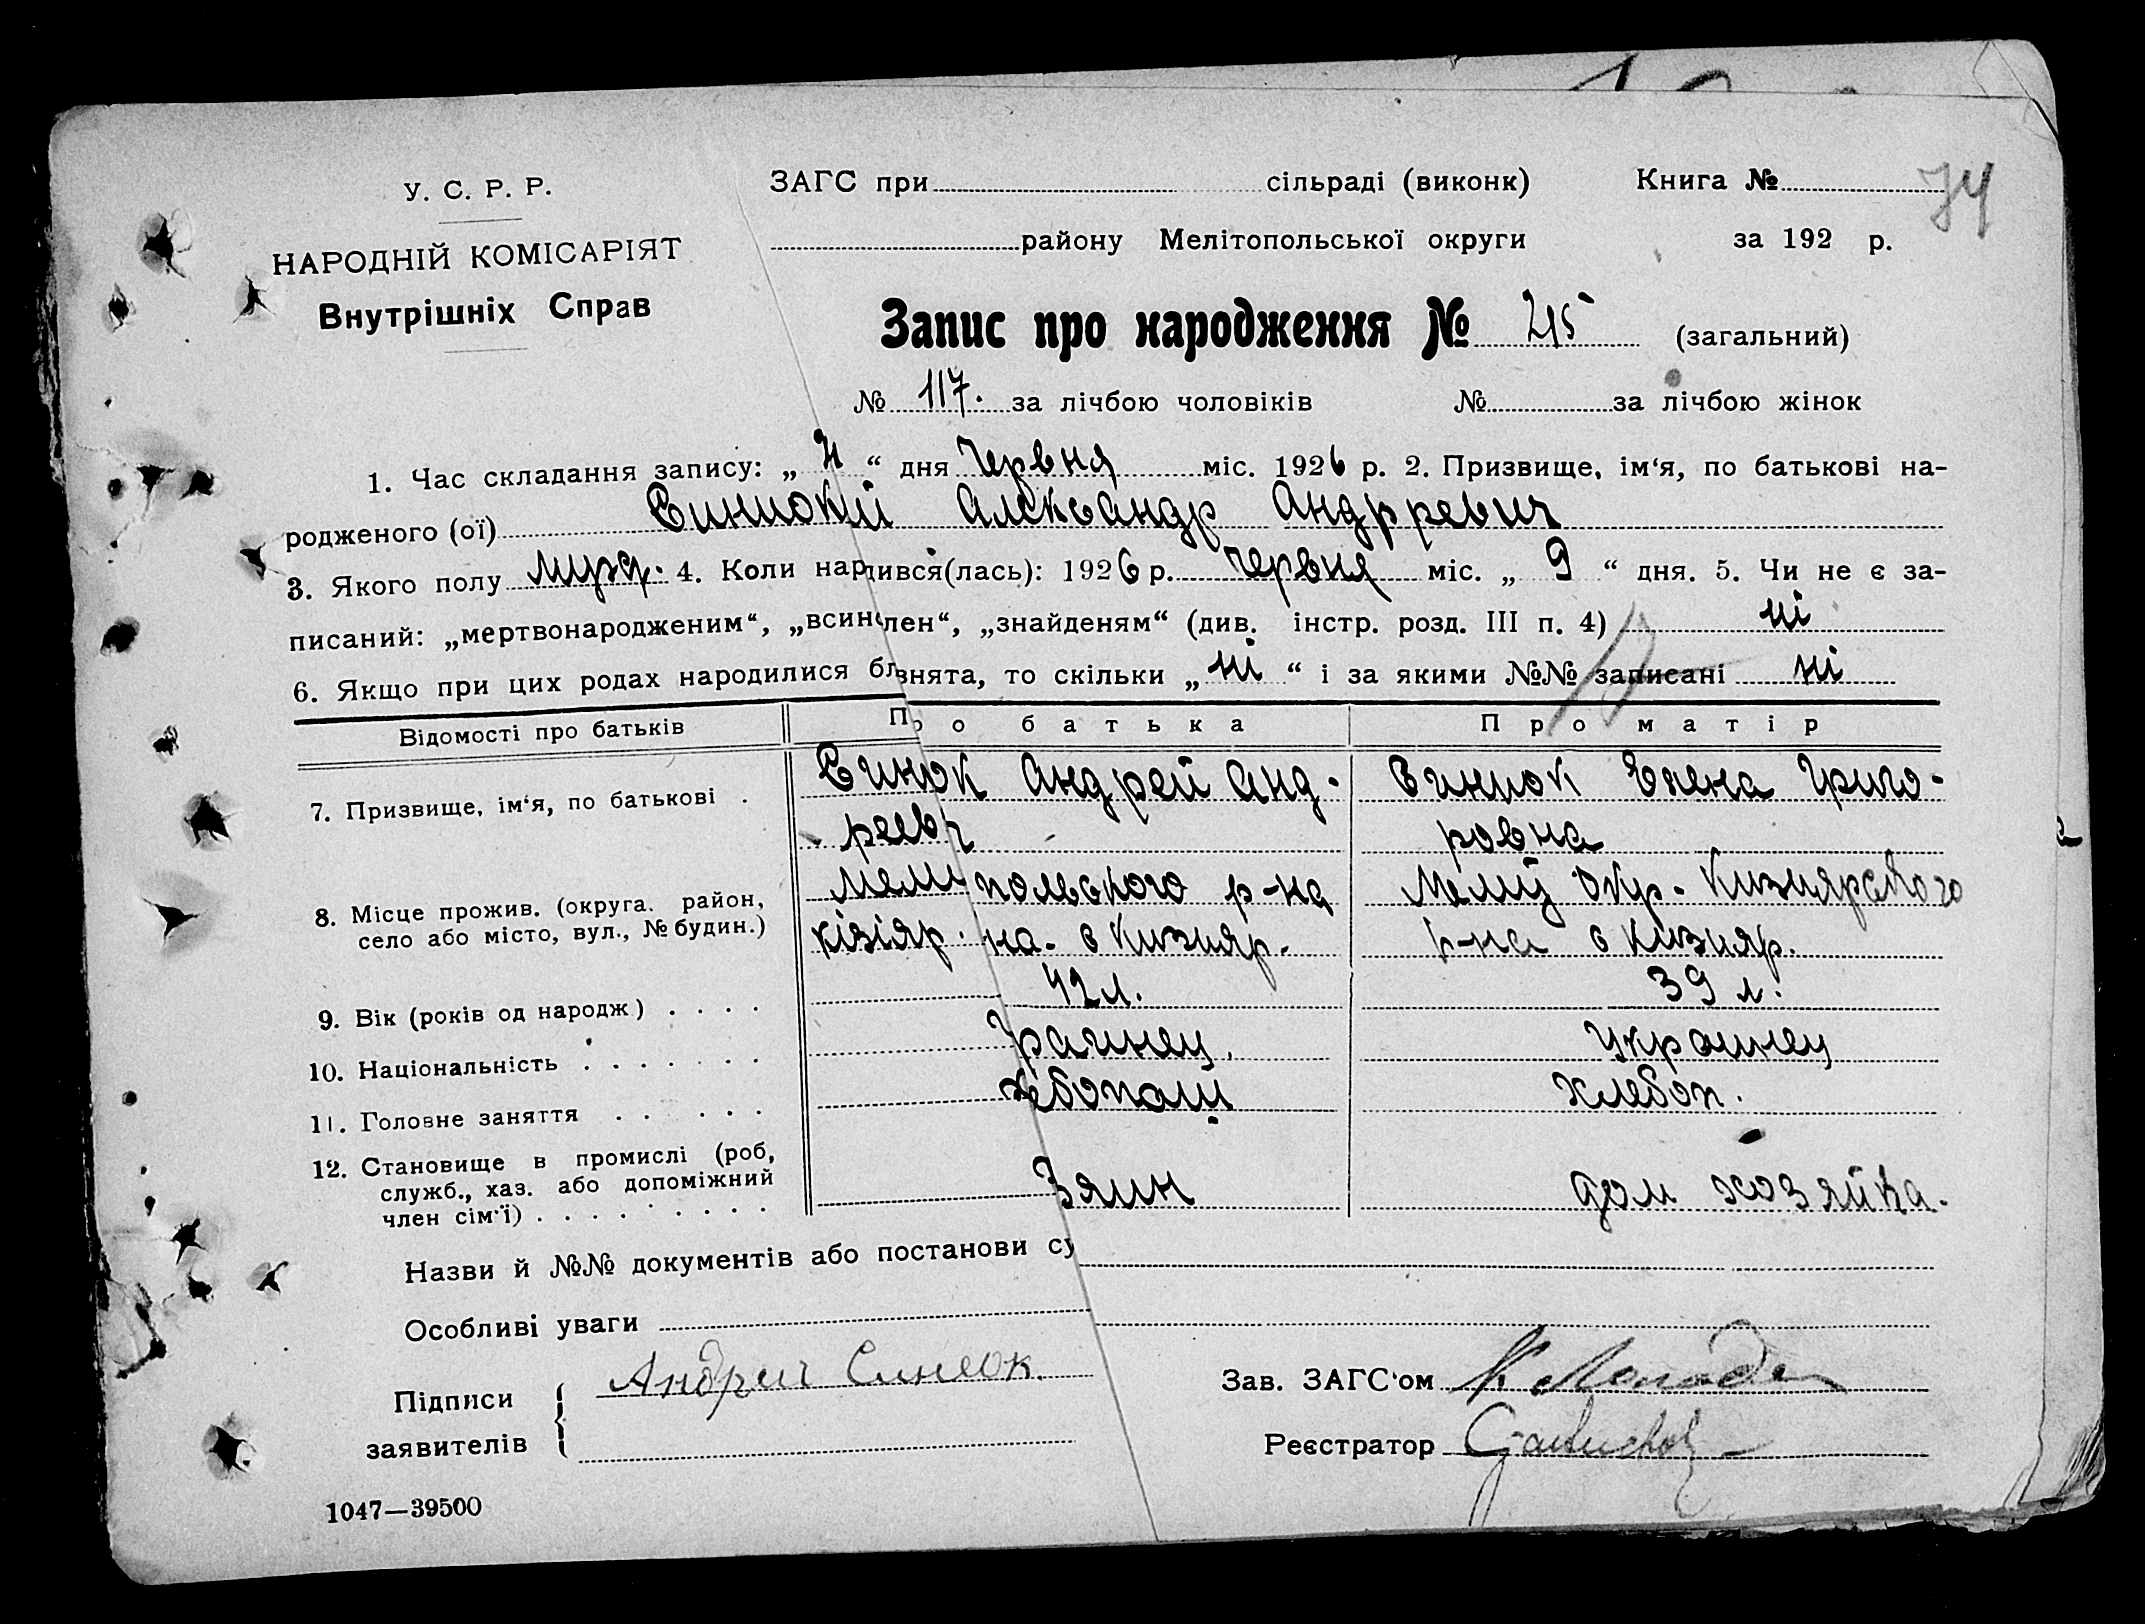 74
У. С. Р. Р.
НАРОДНІЙ КОМІСАРІЯТ
Внутрішніх Справ
ЗАГС при сільраді (виконк) Книга №
району Мелітопольської округи за 192 р.
Запис про народження № 215 (загальний)
№ 117. за лічбою чоловіків № за лічбою жінок
1. Час складання запису: „ “ дня Червня міс. 1926 р. 2. Призвище, ім‘я, по батькові на-
родженого (ої) Александр
3. Якого полу муж. 4. Коли нар ився(лась): 1926 р. Червня міс. „ 9 “ дня. 5. Чи не є за-
писаний: „мертвонародженим“, „всин лен“, „знайденям“ (див. інстр. розд. III п. 4) ні
6. Якщо при цих родах народилися бл знята, то скільки „ ні “ і за якими №№ записані ні
Відомості про батьків Про батька Про матір
7. Призвище, ім‘я, по батькові . Синюк Андрей Анд- Синюк Елена Григо-
реевч ровна
8. Місце прожив. (округа. район, Мели польского р-на Мелит Окр. Кизиярского
село або місто, вул., № будин.) кізіяр. на. с Кизияр. р-на с Кизияр.
9. Вік (років од народж) . . . . 42 л. 39 л.
10. Національність . . . . . . . Украинец
11. Головне заняття . . . . . . Хлебоп.
12. Становище в промислі (роб,
служб., хаз. або допоміжний
член сім‘ї) . . . . . . . . . дом хозяйка.
Назви й №№ документів або постанови су
Особливі уваги
Підписи
заявителів
Андрей Синюк.
Зав. ЗАГС‘ом
Реєстратор
1047—39500